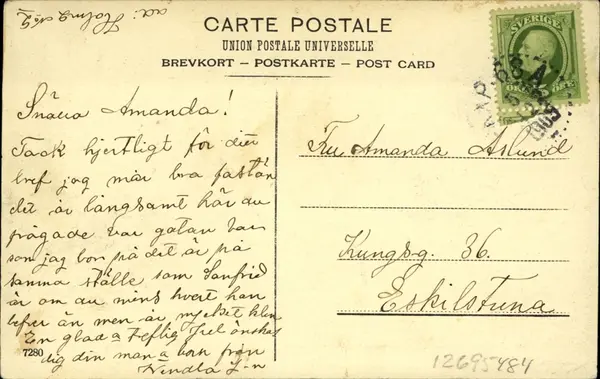 adr. Holmg. No 2
CARTE POSTALE
UNION POSTALE UNIVERSELLE
BREVKORT – POSTKARTE – POST CARD
SVERIGE
Snälla Amanda!
Tack hjertligt för ditt
bref jag mår bra fastän
det är långsamt här du
frågade var gatan var
som jag bor på det är på
samma ställe som Sanfrid
är om du mins hvert han
lefver än men är mycket klen
En glad o treflig Jul önskas
dig din man o barn från
Hendla L-n
7280
Fru Amanda Aslund
Kungsg. 36.
Eskilstuna
12695484